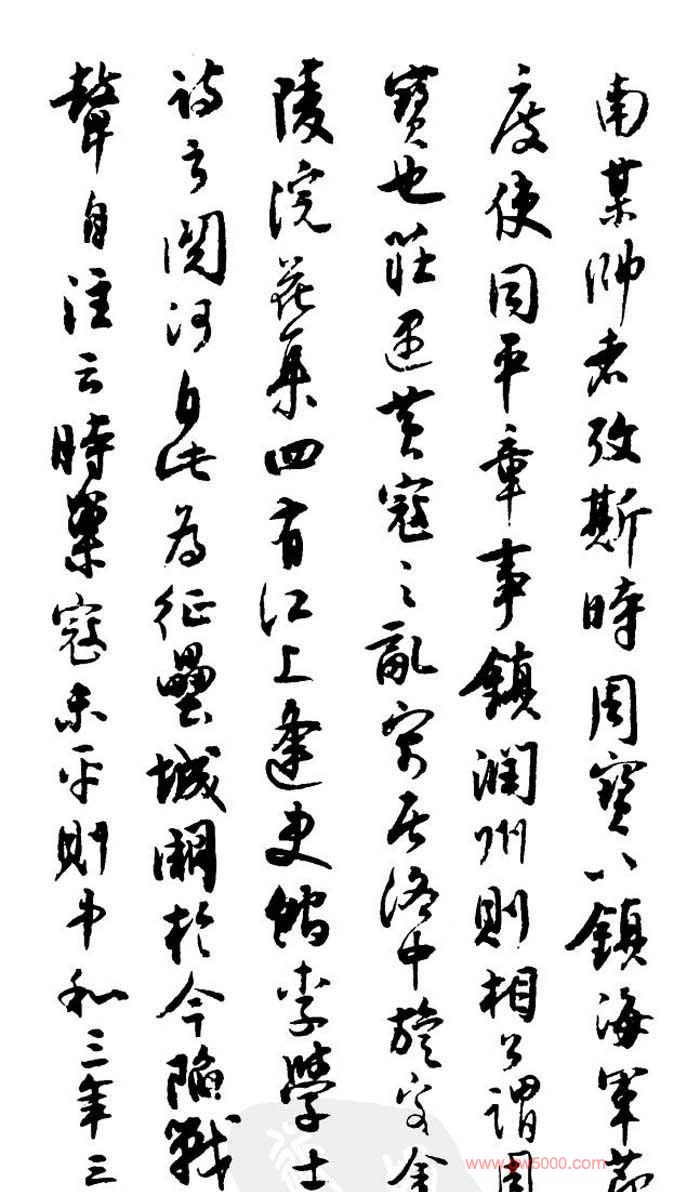 南某帥者攷斯時周寶以鎮海軍節
度使同平章事鎮潤州則相公謂周
寶也莊遭黃寇之亂寄居洛中旋客金
陵浣花集四有江上逢史館李學士
詩云關河自此為征壘城闕於今陷戰
鼙自注云時巢寇未平則中和三年三
www.gw5000.com